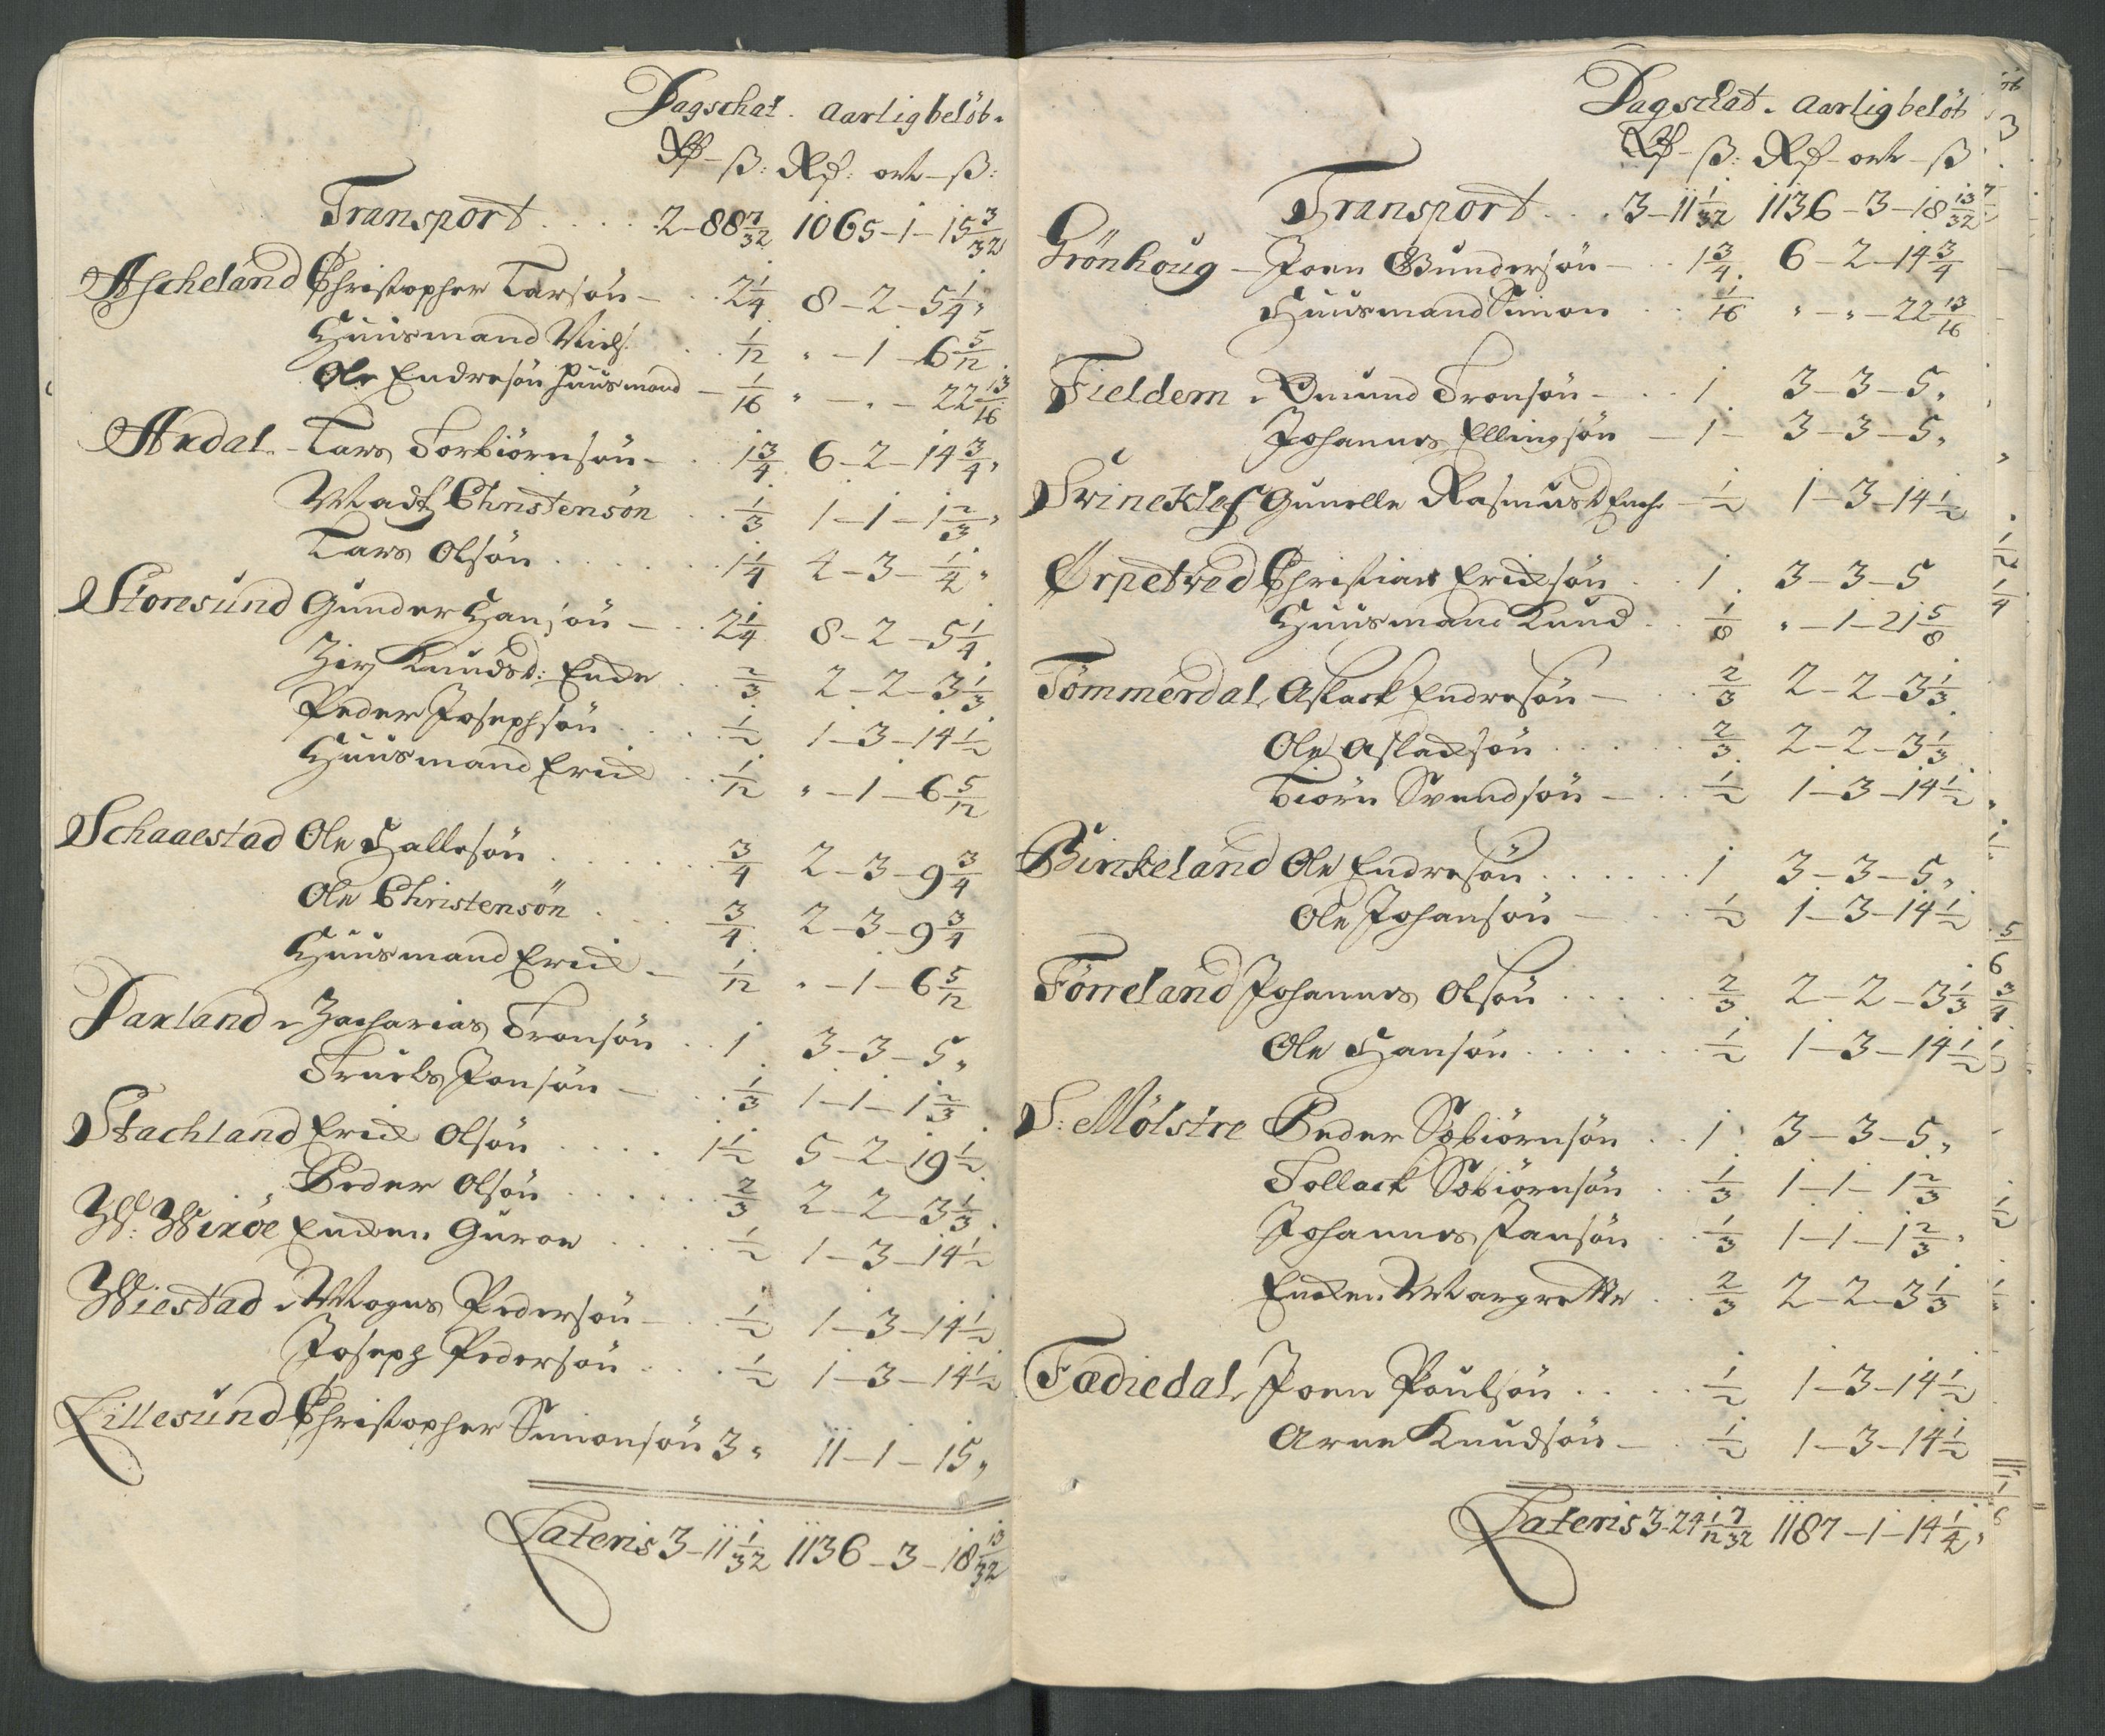 Dagschat. Aarlig beløb.
Rd – ß: Rd: ort – ß:
Transport . . . . 2–88 7/32 1065–1–15 3/32
Ascheland Christopher Larsön – 2 1/4 8–2–5 1/4
Huusmand Niels 1/12 „–1–6 5/12
Ole Endresön Huusmand – 1/16 „–„–22 13/16
Axdal – Lars Torbiörnsön – 1 3/4 6–2–14 3/4
Mads Christensön 1/3 1–1–1 2/3
Lars Olsön . . . . 1 1/4 4–3–1/4
Storesund Gunder Hansön – 2 1/4 8–2–5 1/4
Knudsd: Enche 2/3 2–2–3 1/3
Peder Josephsön 1/2 1–3–14 1/2
Huusmand Erich 1/12 „–1–6 5/12
Schaaestad Ole Hallesön . . . . 3/4 2–3–9 3/4
Ole Christensön . . 3/4 2–3–9 3/4
Huusmand Erich – 1/12 „–1–6 5/12
Daxland – Zacharias Tronsön . . 1 3–3–5„
Truels Jonsön – 1/3 1–1–1 2/3
Stachland Erich Olsön . . . . 1 1/2 5–2–19 1/2
Peder Olsön . . . . 2/3 2–2–3 1/3
W: Wixöe Enchen Guroe . . . . 1/2 1–3–14 1/2
Wiestad – Mogns Pedersön – 1/2 1–3–14 1/2
Joseph Pedersön . . 1/2 1–3–14 1/2
Lillesund Christopher Simonsön 3„ 11–1–15„
Lateris 3–11 1/32 1136–3–18 13/32
Dagschat. Aarlig beløb
Rd – ß: Rd – ort – ß
Transport . . . 3–11 1/32 1136–3–18 13/32
Grönhoug – Joen Gundersön – 1 3/4 6–2–14 3/4
Huusmand Simon . . 1/16 „–„–22 13/16
Fieldem – Omund Tronsön – 1 3–3–5„
Johannes Ellingsön – 1 – 3–3–5„
Svineklef Gunelle Rasmusd Ench – 1/2 1–3–14 1/2
Ørpetved Christian Erichsön . . 1 3–3–5
Huusmand Knud . . 1/8 „–1–21 5/8
Tömmerdal Aslack Endresön – 2/3 2–2–3 1/3
Ole Aslachsön . . . . 2/3 2–2–3 1/3
Biörn Svendsön – 1/2 1–3–14 1/2
Binkeland Ole Endresön . . . . 1 3–3–5„
Ole Johansön – 1/2 1–3–14 1/2
Förreland Johannes Olsön . . . . 2/3 2–2–3 1/3
Ole Hansön . . . . 1/2 1–3–14 1/2
S: Mölstre Peder Söbiörnsön . . 1 3–3–5„
Tollack Söbiörnsön . . 1/3 1–1–1 2/3
Johannes Jansön . . 1/3 1–1–1 2/3
Enchen Margrette . . 2/3 2–2–3 1/3
Fædiedal Joen Poulsön . . . . 1/2 1–3–14 1/2
Arne Knudsön – 1/2 1–3–14 1/2
Lateris 3–24 1/12 7/32 1187–1–14 1/4